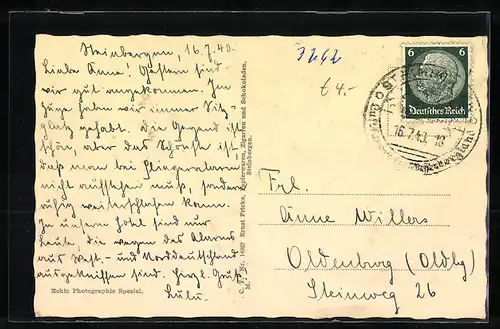 Steinbergen, 16.7.40.
Liebe Anne! Gestern sind
wir gut angekommen. Im
Zuge haben wir immer Sitz-
platz gehabt. Die Gegend ist
schön, aber das Schönste ist,
daß man bei Fliegeralarm
nicht aufstehen muß, sondern
ruhig weiterschlafen kann.
In unserm Hotel sind nur
Leute, die wegen des Alarms
aus West- und Norddeutschland
ausgekniffen sind. Herzl. Gruß
Lulu.
Echte Photographie Spezial.
Ernst Fricke, Papierwaren, Zigarren und Schokoladen,
Steinbergen.
3292
€ 4.-
6 6
Deutsches Reich
16.7.40. 18
Frl.
Anne Willers
Oldenburg (Oldbg)
Steinweg 26